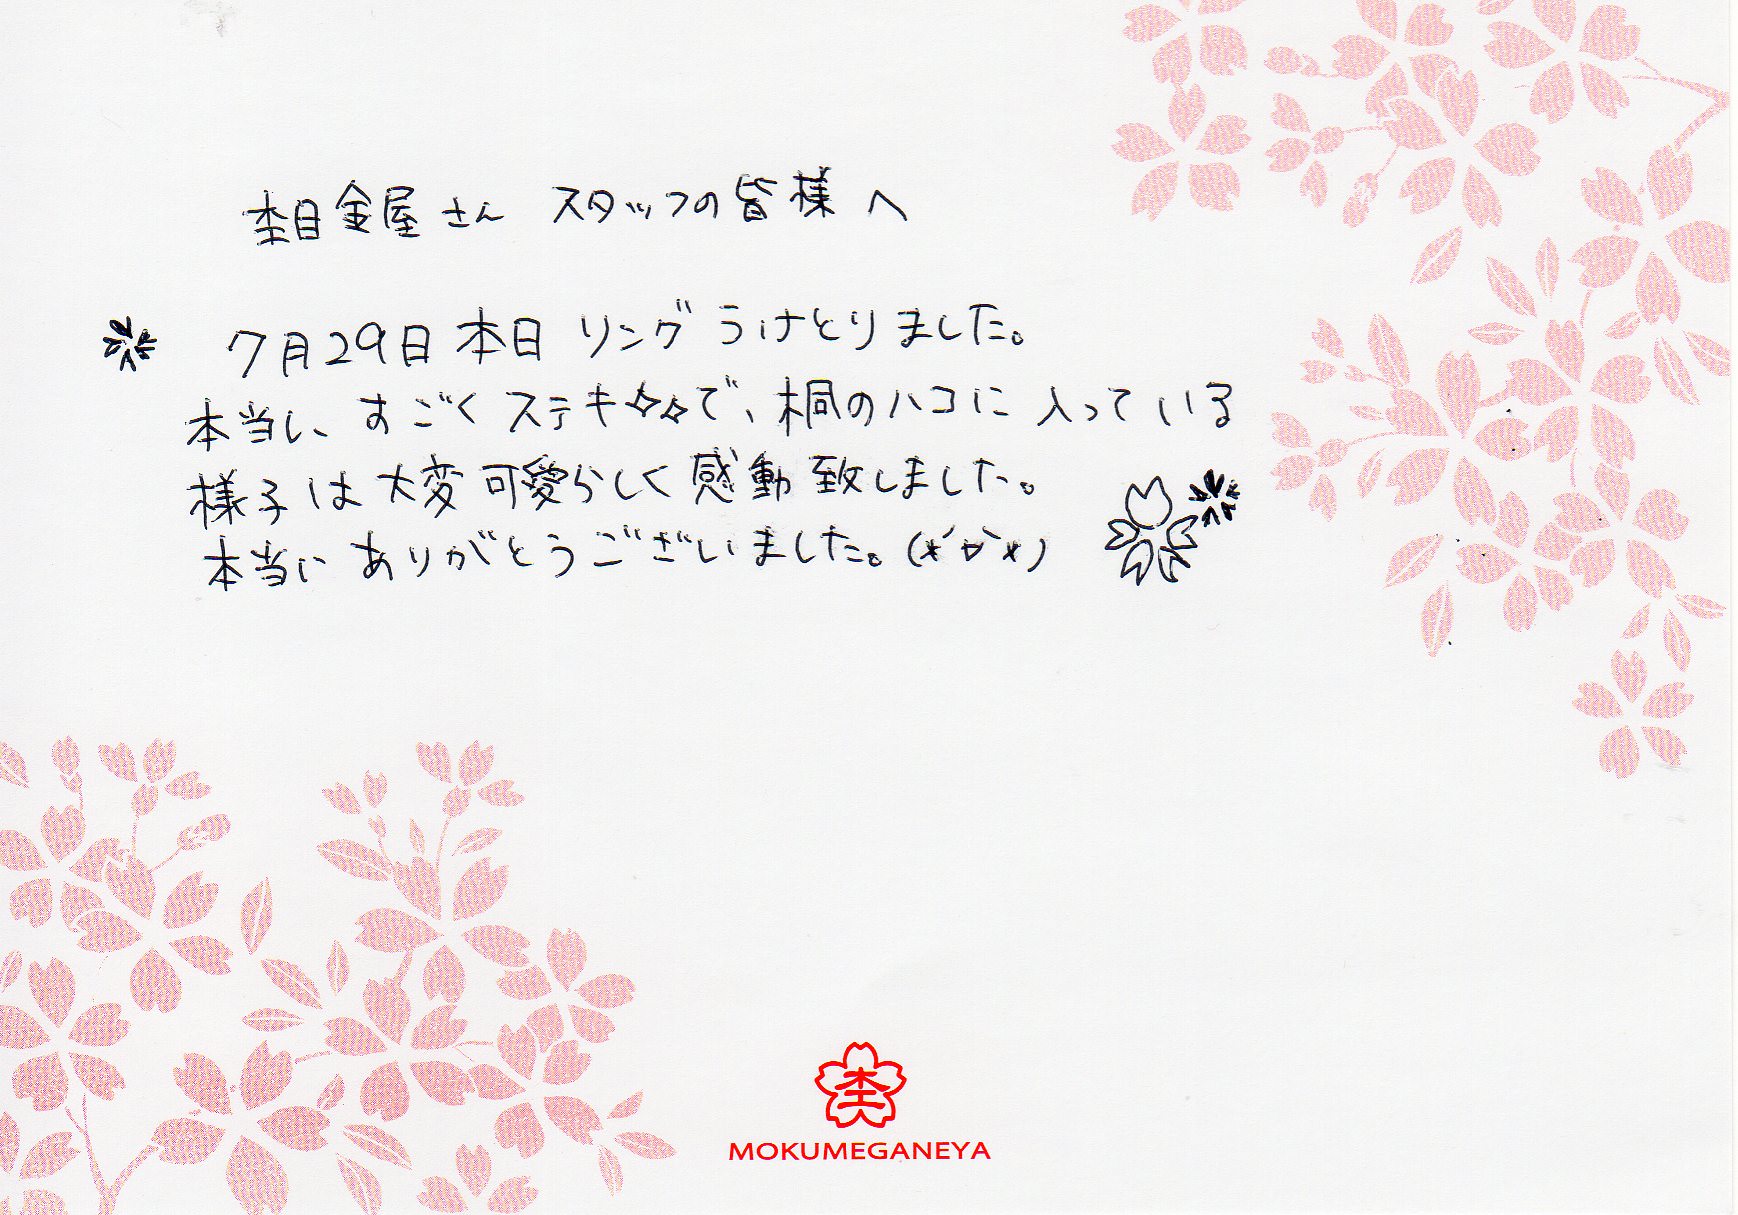 杢目金屋さん スタッフの皆様へ
7月29日 本日 リング うけとりました。
本当に、すごく ステキ✧✧で、桐のハコに 入っている
様子は 大変 可愛らしく 感動致しました。
本当に ありがとうございました。(*´▽`*)
杢
MOKUMEGANEYA